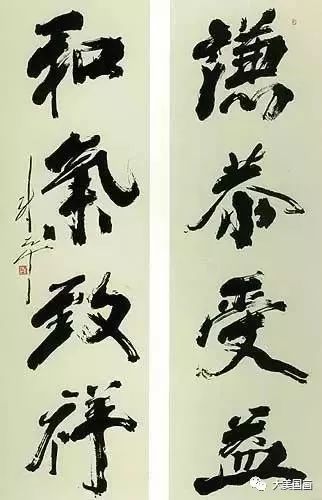 谦恭受益
和氣致祥
大美国画